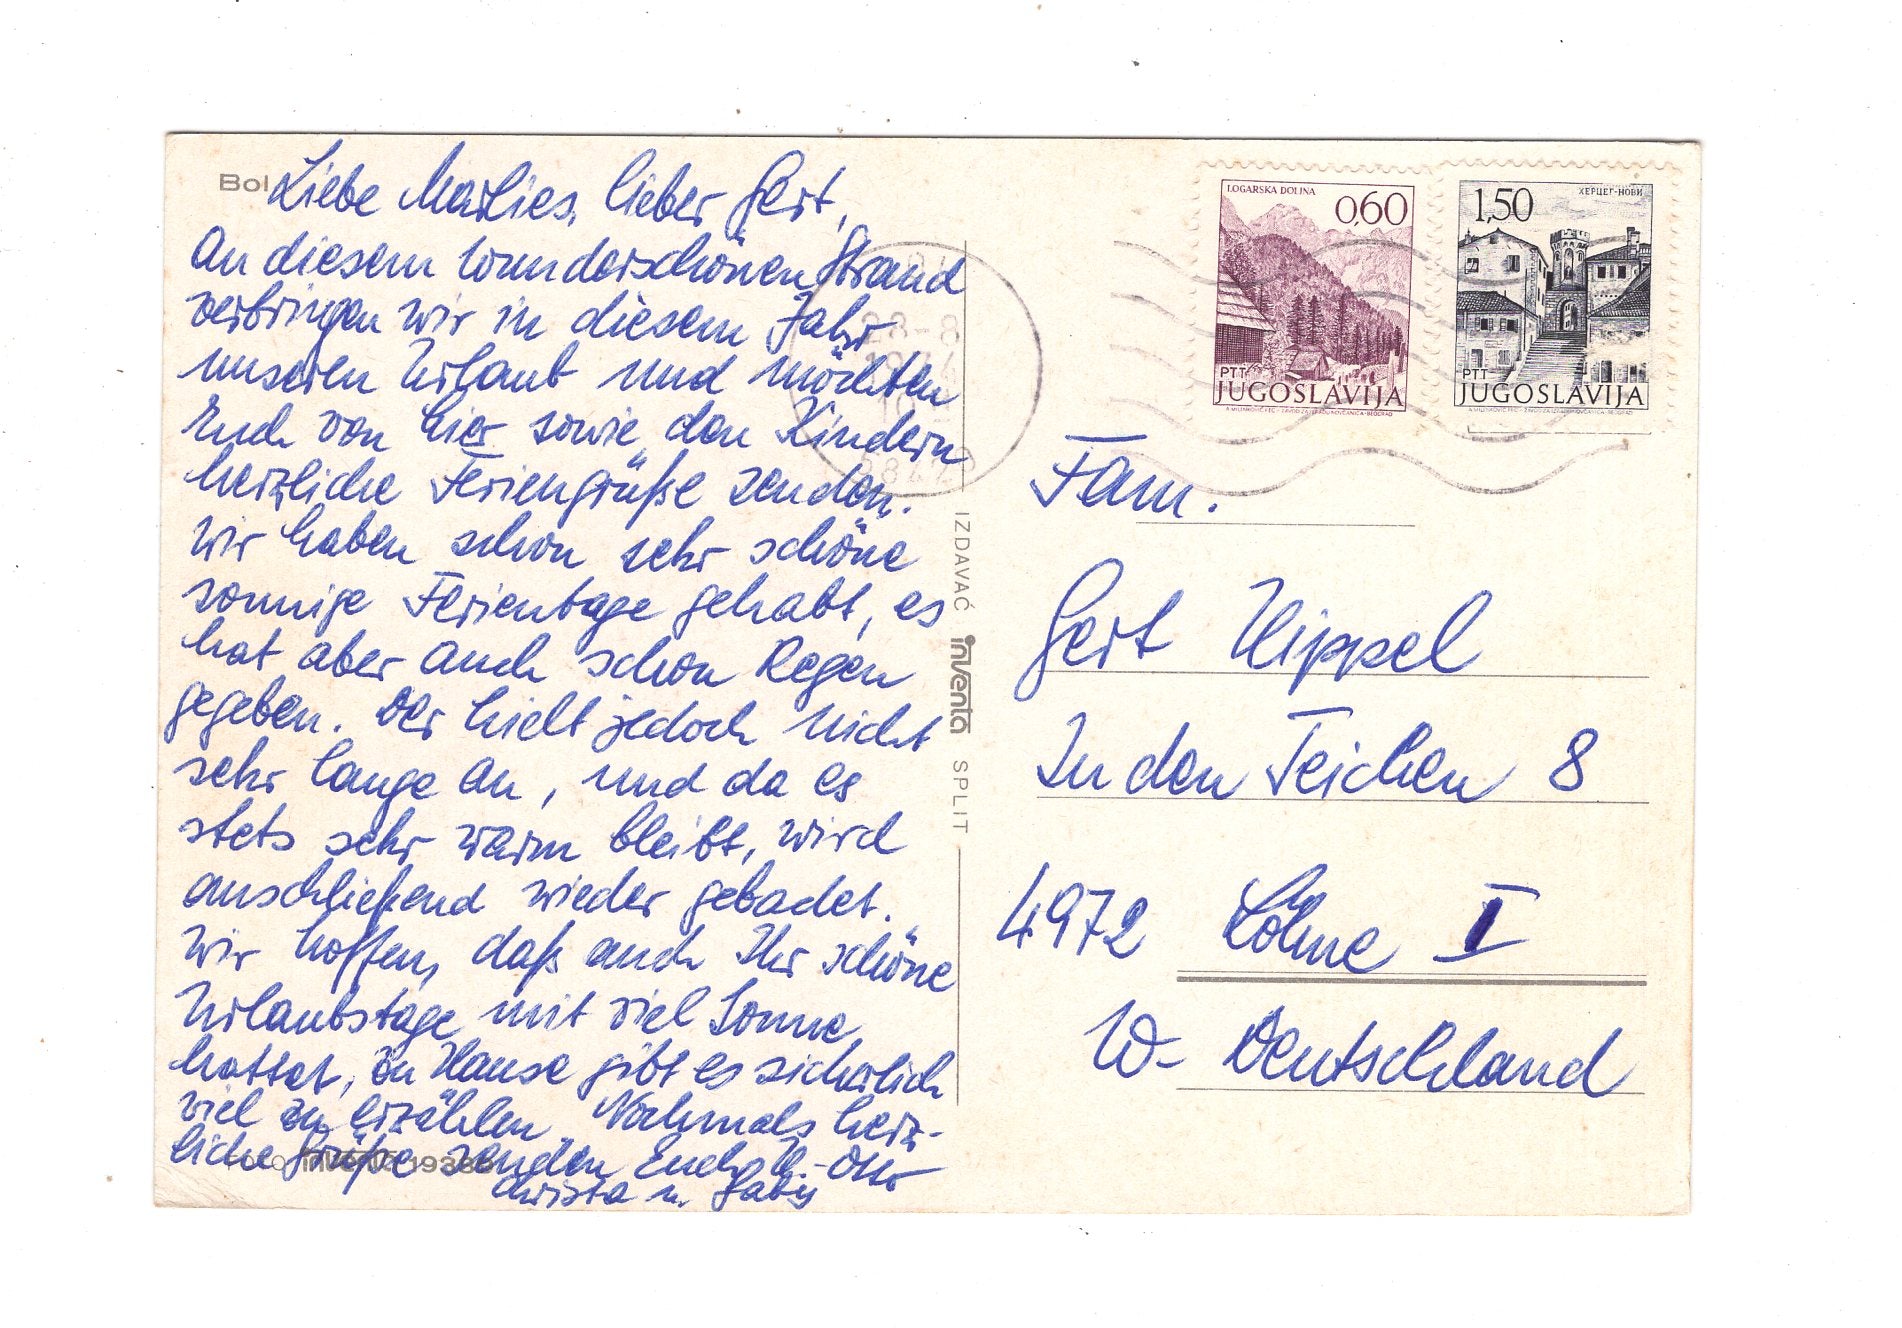 Bol
Liebe Marlies, lieber Gert,
An diesem wunderschönen Strand
verbringen wir in diesem Jahr
unseren Urlaub und möchten
Euch von hier sowie den Kindern
herzliche Feriengrüße senden.
Wir haben schon sehr schöne
sonnige Ferientage gehabt, es
hat aber auch schon Regen
gegeben. Der hielt jedoch nicht
sehr lange an, und da es
stets sehr warm bleibt, wird
anschließend wieder gebadet.
Wir hoffen, daß auch Ihr schöne
Urlaubstage mit viel Sonne
hattet, zu Hause gibt es sicherlich
viel zu erzählen. Nochmals herz-
liche Grüße senden Euch H.-Otto
Christa u. Gaby
inventa 1938
IZDAVAČ inventa SPLIT
LOGARSKA DOLINA
0,60
PTT
JUGOSLAVIJA
A. MILENKOVIĆ FEC - ZAVOD ZA IZRADU NOVČANICA - BEOGRAD
ХЕРЦЕГ-НОВИ
1,50
PTT
JUGOSLAVIJA
A. MILENKOVIĆ FEC - ZAVOD ZA IZRADU NOVČANICA - BEOGRAD
28-8
1974
Fam.
Gert Hippel
In den Teichen 8
4972 Löhne I
W-Deutschland